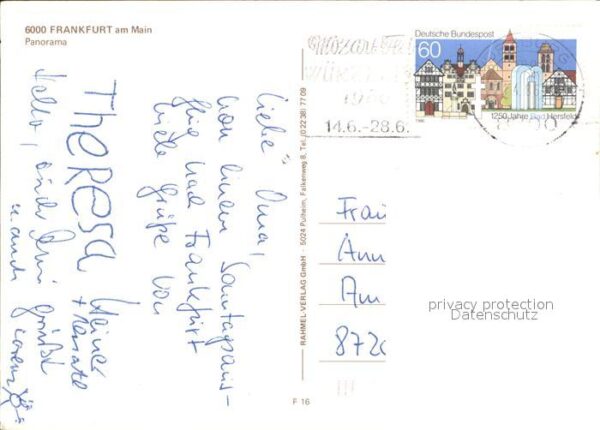 6000 FRANKFURT am Main
Panorama
Liebe Oma,
von einem Sonntagsaus-
flug nach Frankfurt
viele Grüße von
Heiner
+ Renate
THERESA
Hallo,
grüßt
u. auch
RAHMEL-VERLAG GmbH · 5024 Pulheim, Falkenweg 8, Tel. 0 22 38/77 09
F 16
Mozart Fest
WÜRZBURG
14.6.-28.6.
Deutsche Bundespost
60
1250 Jahre Bad Hersfeld
Frau
Ann
Am
8720
privacy protection
Datenschutz